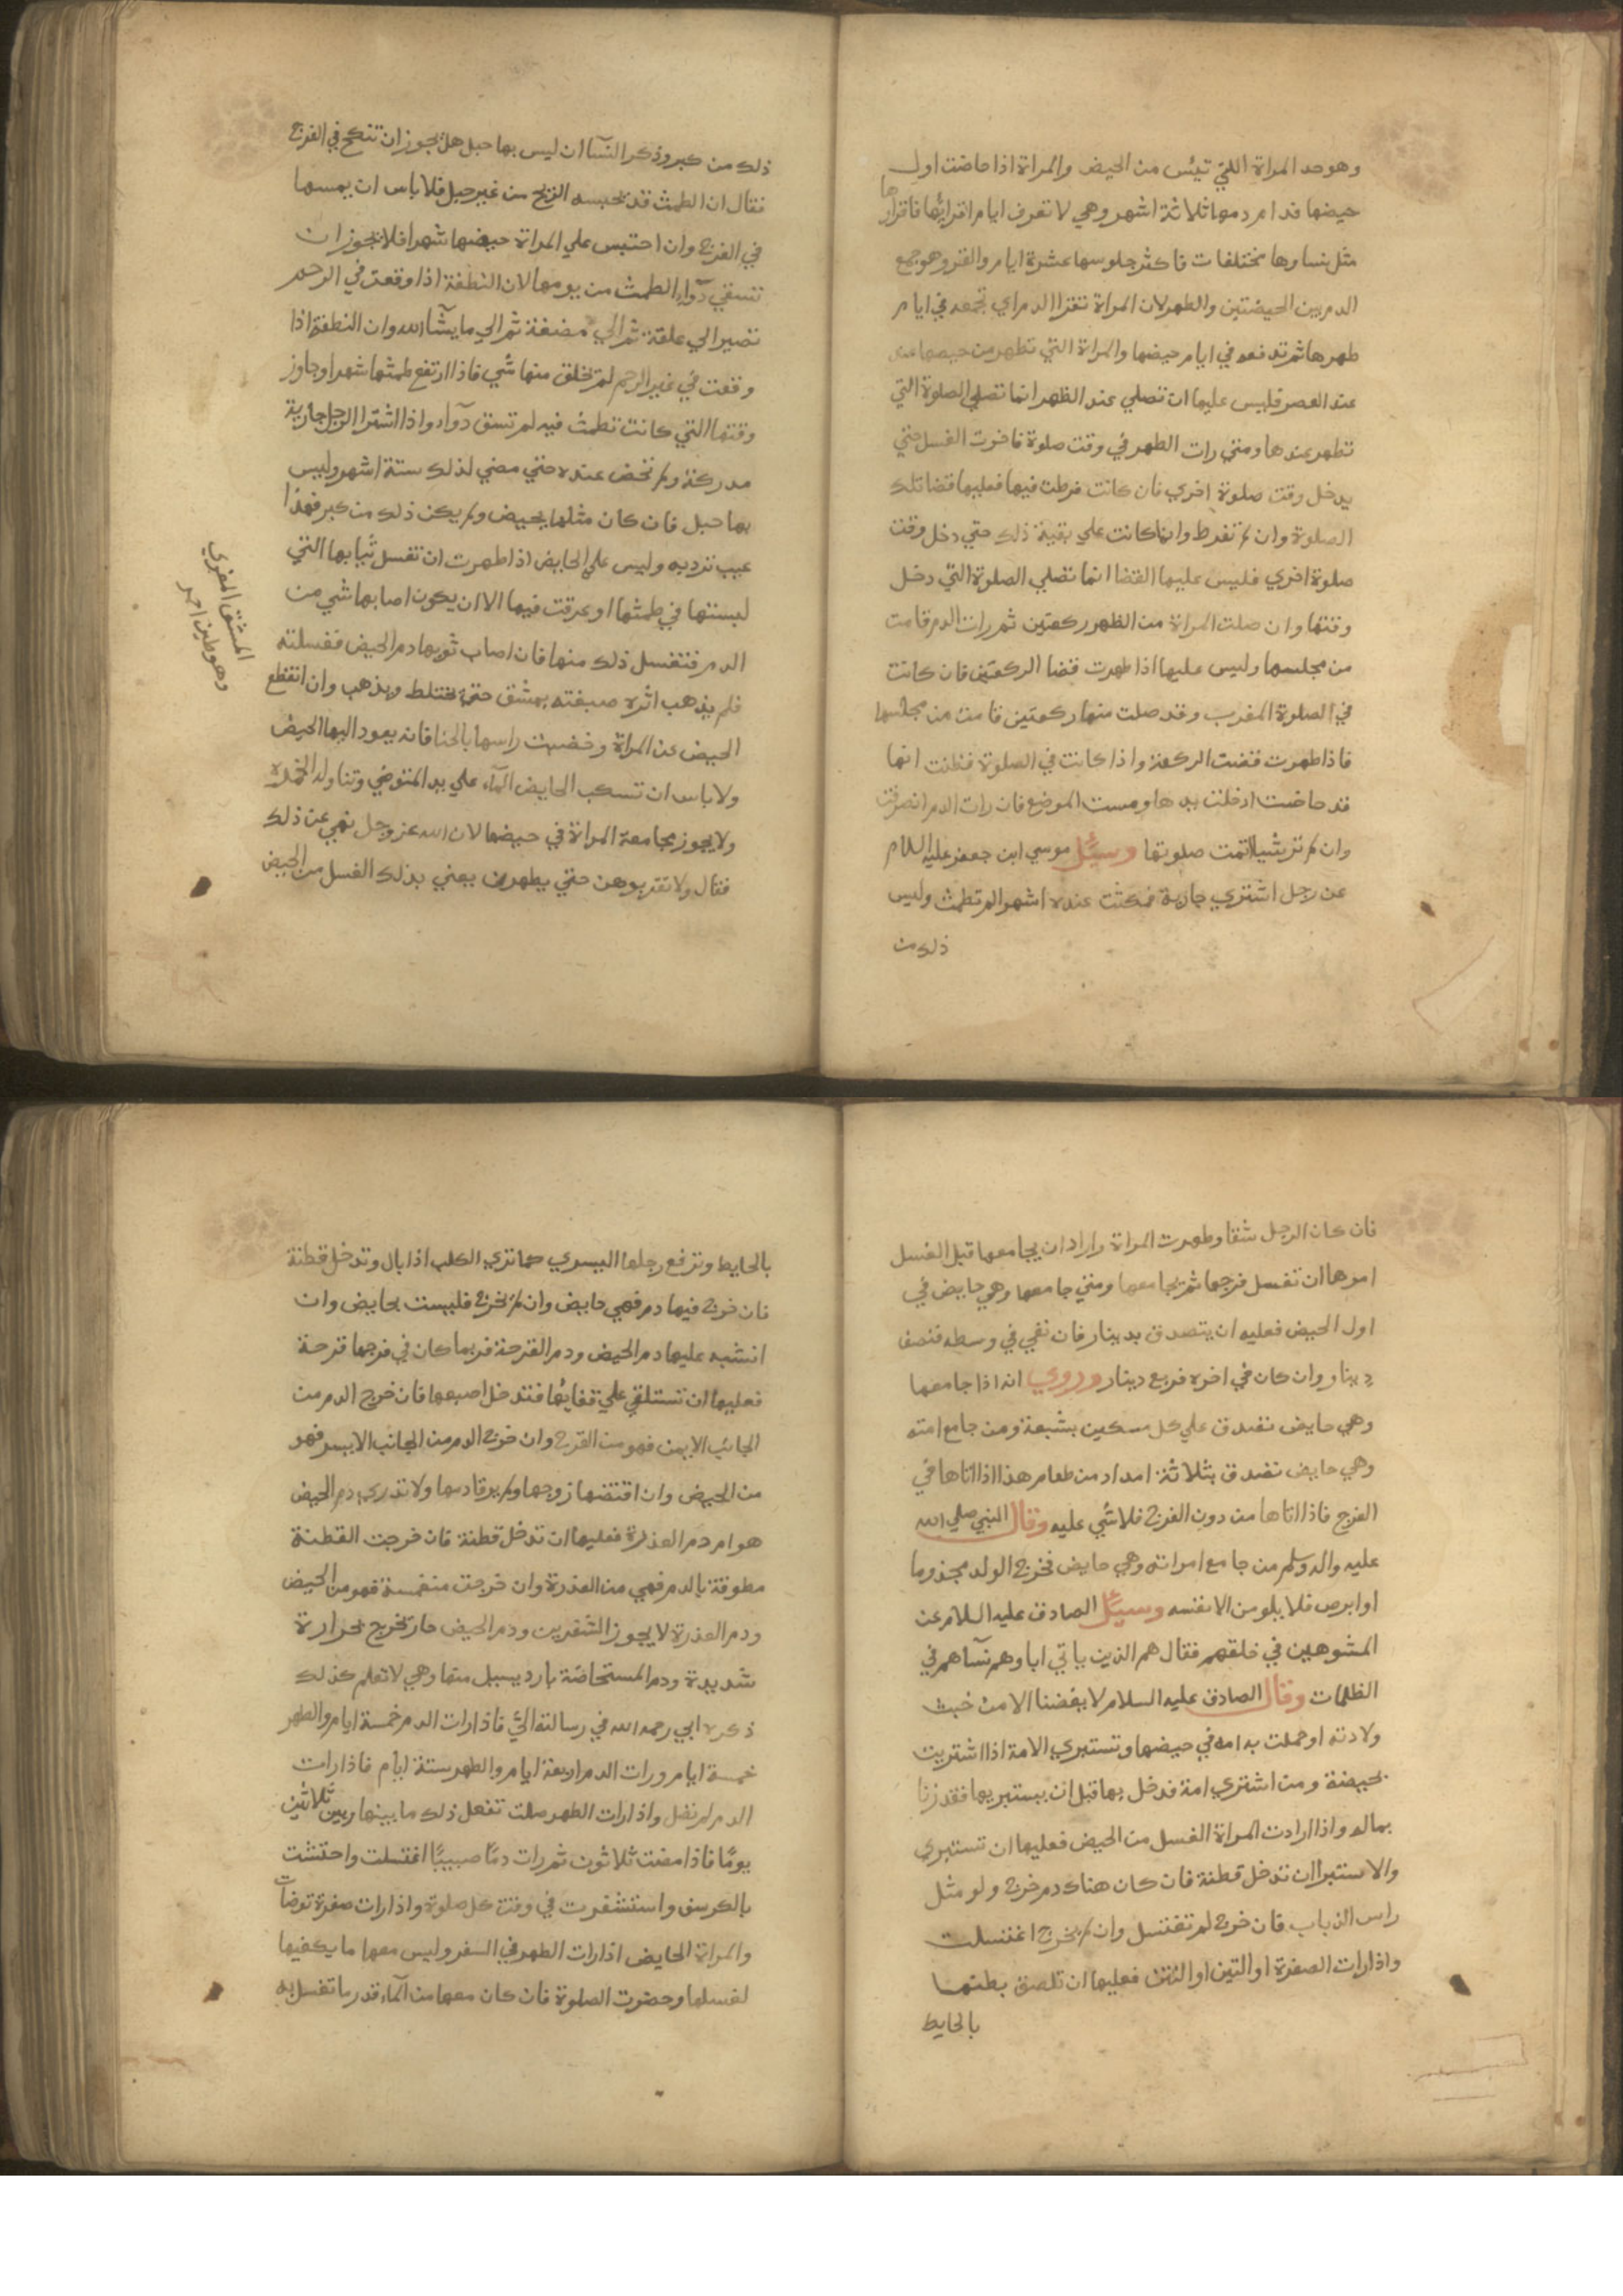 وهو حد المراة اللتي تيئس من الحيض والمراة اذا حاضت اول
حيضها فدام دمها ثلاثة اشهر وهي لا تعرف ايام اقرائها فاقراؤها
مثل نساوها مختلفات فاكثر جلوسها عشرة ايام والقر وهو جمع
الدم بين الحيضتين والطهر لان المراة تقرا الدم اي تجمعه في ايام
طهرها ثم تدفعه في ايام حيضها والمراة التي تطهر من حيضها عند
عند العصر فليس عليها ان تصلي عند الظهر انما تصلي الصلوة التي
تطهر عندها ومتي رات الطهر في وقت صلوة فاخرت الغسل حتي
يدخل وقت صلوة اخري فان كانت فرطت فيها فعليها قضا تلك
الصلوة وان لم تفرط وانما كانت علي بقية ذلك حتي دخل وقت
صلوة اخري فليس عليها القضا انما تصلي الصلوة التي دخل
وقتها وان صلت المراة من الظهر ركعتين ثم رات الدم قامت
من مجلسها وليس عليها اذا طهرت قضا الركعتين فان كانت
في الصلوة المغرب وقد صلت منها ركعتين قامت من مجلسها
فاذا طهرت قضت الركعة واذا كانت في الصلوة فظنت انها
قد حاضت ادخلت يدها ومست الموضع فان رات الدم انصرفت
وان لم تر شيا اتمت صلوتها وسئل موسي ابن جعفر عليه السلام
عن رجل اشتري جارية فمكثت عنده اشهرا لم تطمث وليس
ذلك من
ذلك من كبر وذكر النسآ ان ليس بها حبل هل يجوز ان تنكح في الفرج
فقال ان الطمث قد تحبسه الريح من غير حبل فلا باس ان يمسها
في الفرج وان احتبس علي المراة حيضها شهرا فلا يجوز ان
تسقي دوآء الطمث من يومها لان النطفة اذا وقعت في الرحم
تصير الي علقة ثم الي مضغة ثم الي ما يشآ الله وان النطفة اذا
وقعت في غير الرحم لم تخلق منها شي فاذا ارتفع طمثها شهرا وجاوز
وقتها التي كانت تطمث فيه لم تسق دوآء واذا اشترا الرجل جارية
مدركة ولم تحض عنده حتي مضي لذلك ستة اشهر وليس
بها حبل فان كان مثلها يحيض ولم يكن ذلك من كبر فهذا
عيب ترد به وليس علي الحايض اذا طهرت ان تغسل ثيابها التي
لبستها في طمثها او عرقت فيها الا ان يكون اصابها شي من
الدم فتغسل ذلك منها فان اصاب ثوبها دم الحيض فغسلته
فلم يذهب اثره صبغته بمشق حتي يختلط ويذهب وان انقطع
الحيض عن المراة وخضبت راسها بالحنا فانه يعود اليها الحيض
ولا باس ان تسكب الحايض المآء علي يد المتوضي وتناوله الخمرة
ولا يجوز مجامعة المراة في حيضها لان الله عز وجل نهي عن ذلك
فقال ولا تقربوهن حتي يطهرن يعني بذلك الغسل من الحيض
المشق المغري
وهو طين احمر
فان كان الرجل شبقا وطهرت المراة واراد ان يجامعها قبل الغسل
امرها ان تغسل فرجها ثم يجامعها ومتي جامعها وهي حايض في
اول الحيض فعليه ان يتصدق بدينار فان بقي في وسطه فنصف
دينار وان كان في اخره فربع دينار وروي انه اذا جامعها
وهي حايض تصدق علي كل مسكين بشبعة ومن جامع امته
وهي حايض تصدق بثلاثة امداد من طعام هذا اذا اتاها في
الفرج فاذا اتاها من دون الفرج فلا شي عليه وقال النبي صلي الله
عليه واله وسلم من جامع امراته وهي حايض فخرج الولد مجذوما
او ابرص فلا يلومن الا نفسه وسيئل الصادق عليه السلام عن
المشوهين في خلقهم فقال هم الذين ياتي اباوهم نسآهم في
الظلمات وقال الصادق عليه السلام لا يبغضنا الا من خبث
ولادته او حملت به امه في حيضها وتستبري الامة اذا اشتريت
بحيضة ومن اشتري امة فدخل بها قبل ان يستبريها فقد زنا
بماله واذا ارادت المراة الغسل من الحيض فعليها ان تستبري
والاستبرا ان تدخل قطنة فان كان هناك دم خرج ولو مثل
راس الذباب فان خرج لم تغتسل وان لم يخرج اغتسلت
واذا رات الصفرة او التين او النتن فعليها ان تلصق بطنها
بالحايط
بالحايط وترفع رجلها اليسري كما تري الكلب اذا بال وتدخل قطنة
فان خرج فيها دم فهي حايض وان لم يخرج فليست بحايض وان
اشتبه عليها دم الحيض ودم القرحة فربما كان في فرجها قرحة
فعليها ان تستلقي علي قفائها فتدخل اصبعها فان خرج الدم من
الجانب الايمن فهو من القرح وان خرج الدم من الجانب الايسر فهو
من الحيض وان اقتضها زوجها ولم يرقا دمها ولا تدري دم الحيض
هو ام دم العذرة فعليها ان تدخل قطنة فان خرجت القطنة
مطوقة بالدم فهي من العذرة وان خرجت منغمسة فهو من الحيض
ودم العذرة لا يجوز الشفرين ودم الحيض حار تخرج بحرارة
شديدة ودم المستحاضة بارد يسيل منها وهي لا تعلم كذلك
ذكره ابي رحمه الله في رسالته الي فاذا رات الدم خمسة ايام والطهر
خمسة ايام ورات الدم اربعة ايام والطهر ستة ايام فاذا رات
الدم لم تصل واذا رات الطهر صلت تفعل ذلك ما بينها وبين ثلاثين
يومًا فاذا مضت ثلاثون ثم رات دمًا صبيبًا اغتسلت واحتشت
بالكرسف واستشفرت في وقت كل صلوة واذا رات صفرة توضات
والمراة الحايض اذا رات الطهر في السفر وليس معها ما يكفيها
لغسلها وحضرت الصلوة فان كان معها من المآء قدر ما تغسل به